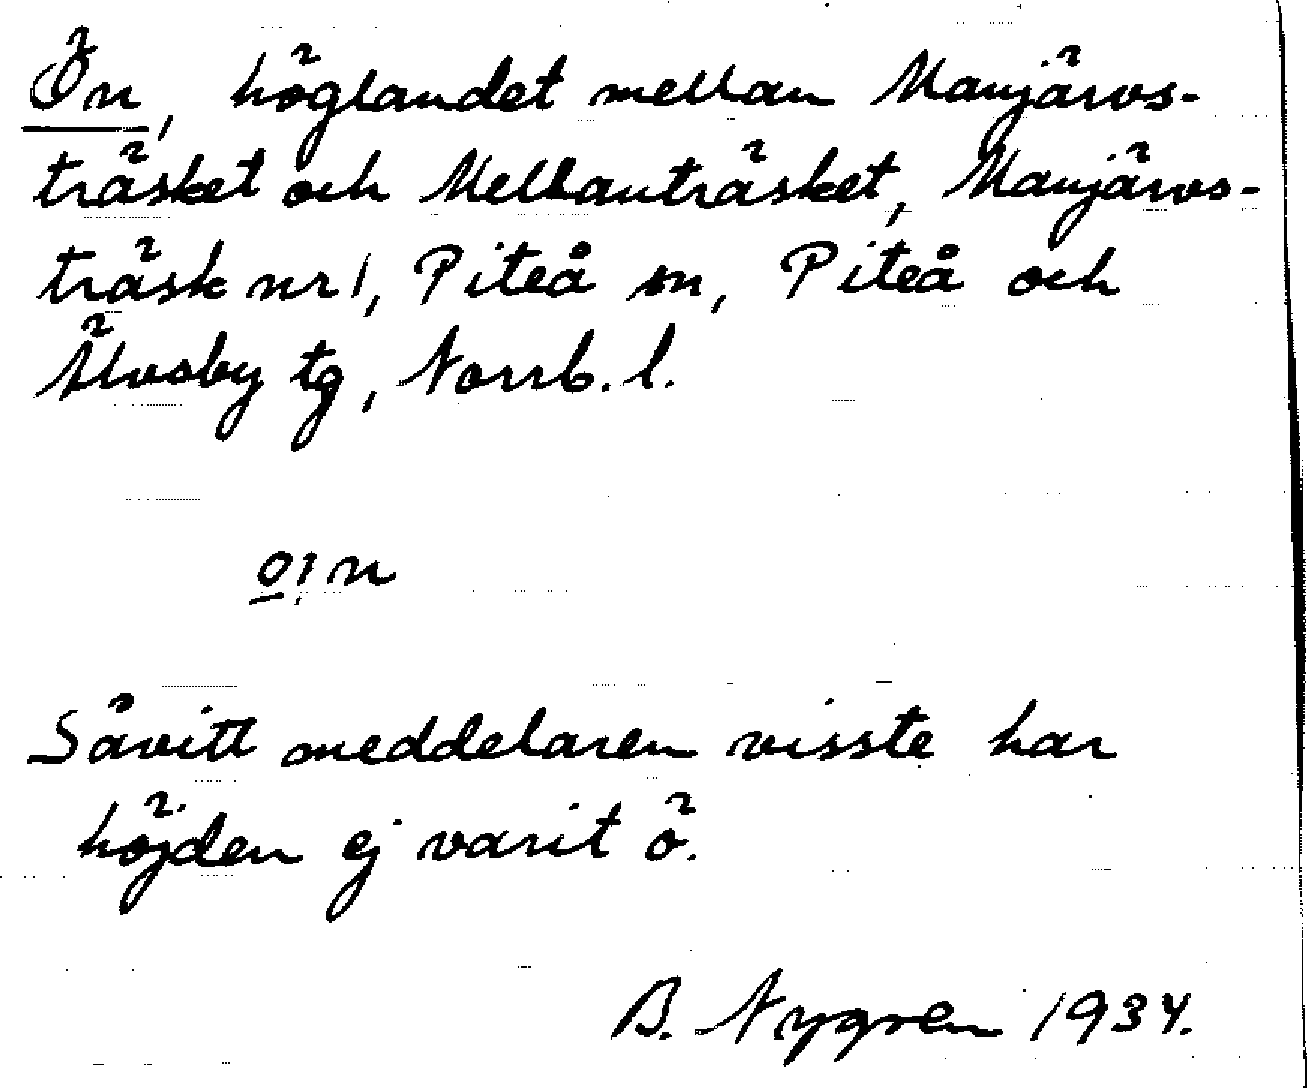 Ön, höglandet mellan Manjärvs-
träsket och Mellanträsket, Manjärvs-
träsk nr 1, Piteå sn, Piteå och
Älvsby tg, Norrb. l.
Såvitt meddelaren visste har
höjden ej varit ö.
B. Nygren 1934.